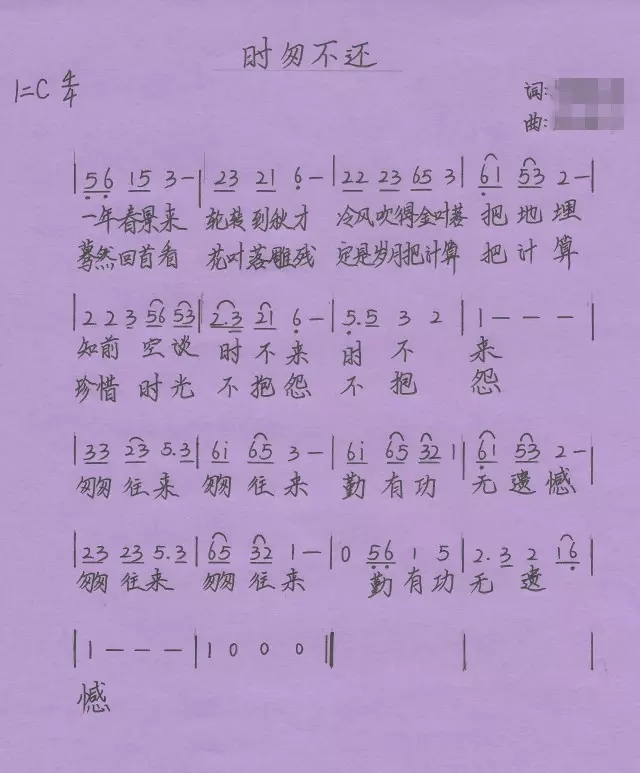 时匆不还
1=C 4/4
词:
曲:
|5̣6̣ 15 3-|23 21 6̣-|22 23 65 3|6̣1 53 2-|
一年春景来 乾转到秋才 冷风吹得金叶落 把地埋
蓦然回首看 花叶落雕残 定是岁月把计算 把计算
|2 2 3 56 53|2.3 21 6̣-|5̣.5 3 2|1---|
如前空谈时不来时不来
珍惜时光不抱怨不抱怨
|33 23 5.3|6i 65 3-|6i 65 32 1|6̣1 53 2-|
匆匆往来 匆匆往来 勤有功 无遗憾
|23 23 5.3|65 32 1-|0 5̣6̣ 1 5|2.3 2 16̣|
匆匆往来 匆匆往来 勤有功无遗
|1---|1000‖
憾